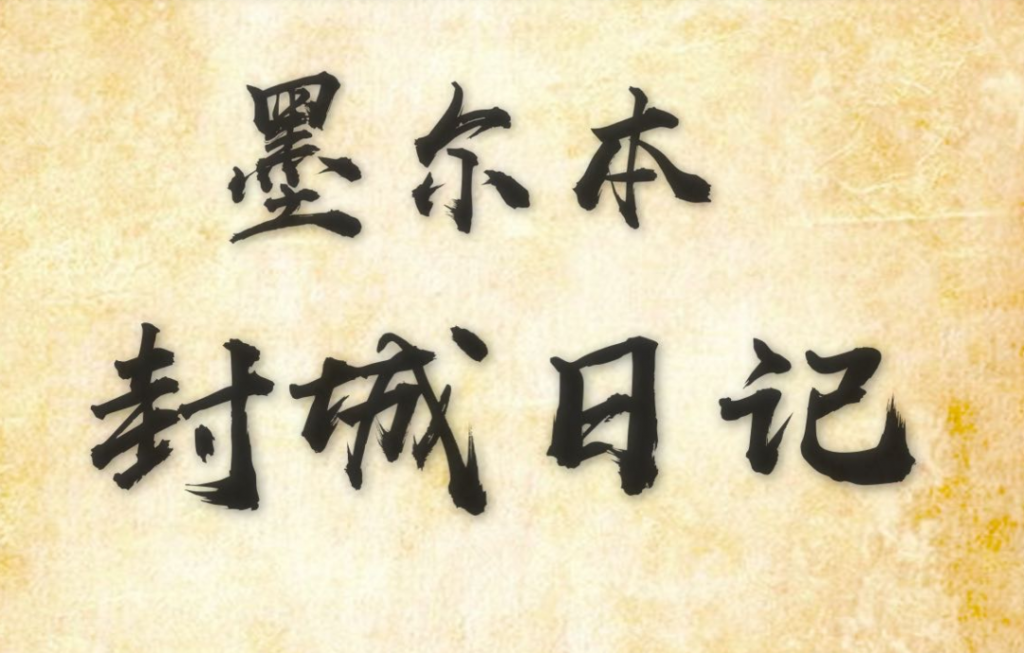 墨尔本
封城日记